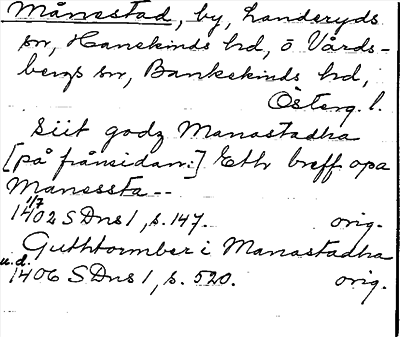 Månestad, by, Landeryds
sn, Hanekinds hd, ö Vårds-
bergs sn, Bankekinds hd,
Österg. l.
siit godz Manastadha
[på frånsidan:] Eth breff opa
Manessta--
1/7
1402 SDns 1, s. 147. orig.
Guthtormber i Manastadha
u.d.
1406 SDns 1, s. 520. orig.